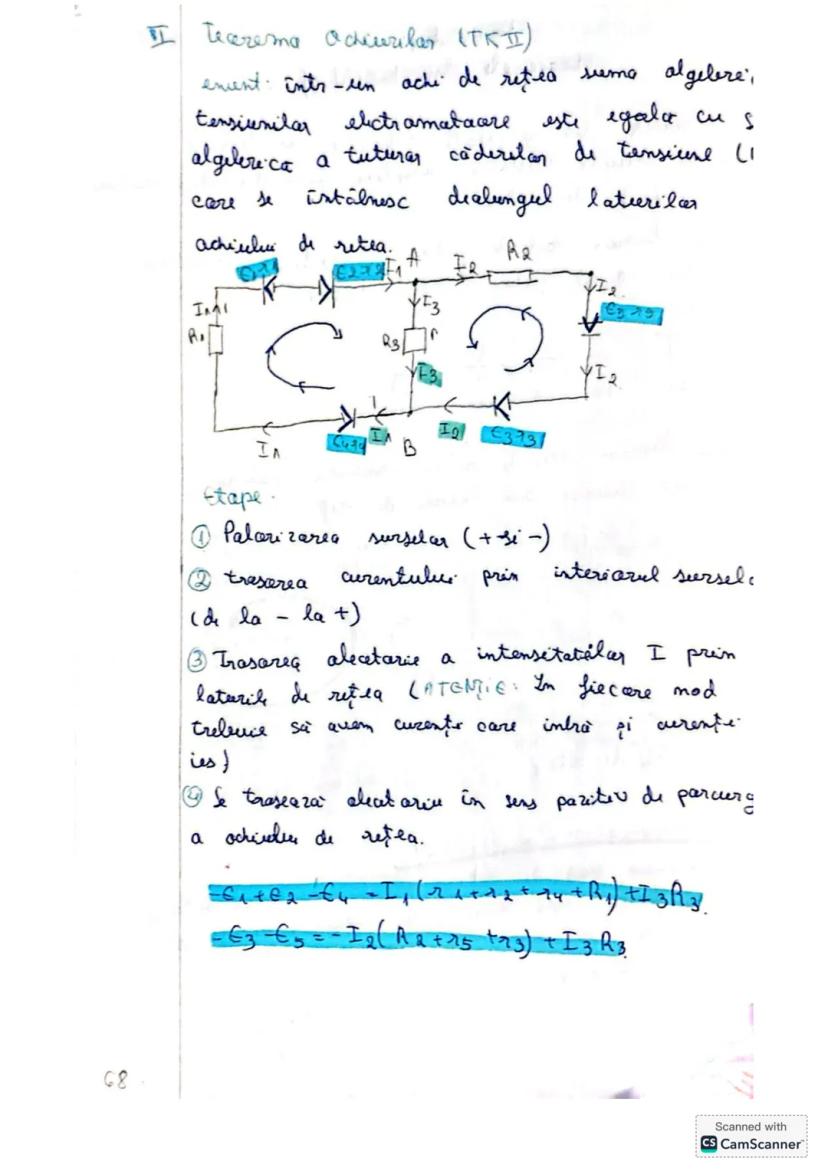 II Teorema ochiurilor (TK II)
enunt: într-un ochi de rețea suma algebric
tensiunilor electromotoare este egala cu s
algebrica a tuturor căderilor de tensiune (I
care se întâlnesc dealungul laturilor
ochiului de retea.
E1 r1 E2 r2 I1 A I2 R2
I1 I3 I2
R1 R3
I3 I2
I1 E4 r4 I1 B I2 E3 r3
Etape.
① Polarizarea surselor (+ si -)
② trasarea curentului prin interiorul sursel
(de la - la +)
③ Trasarea aleatorie a intensitatilor I prin
laturile de rețea (ATENȚIE: In fiecare nod
trebuie să avem curenți care intră și curenți
ies)
④ Se trasează aleatoriu în sens pozitiv de parcurg
a ochiului de rețea.
-E1+E2-E4 = I1(r1+r2+r4+R1)+I3R3.
-E3-E5=-I2(R2+r5+r3)+I3R3.
68
Scanned with
CS CamScanner